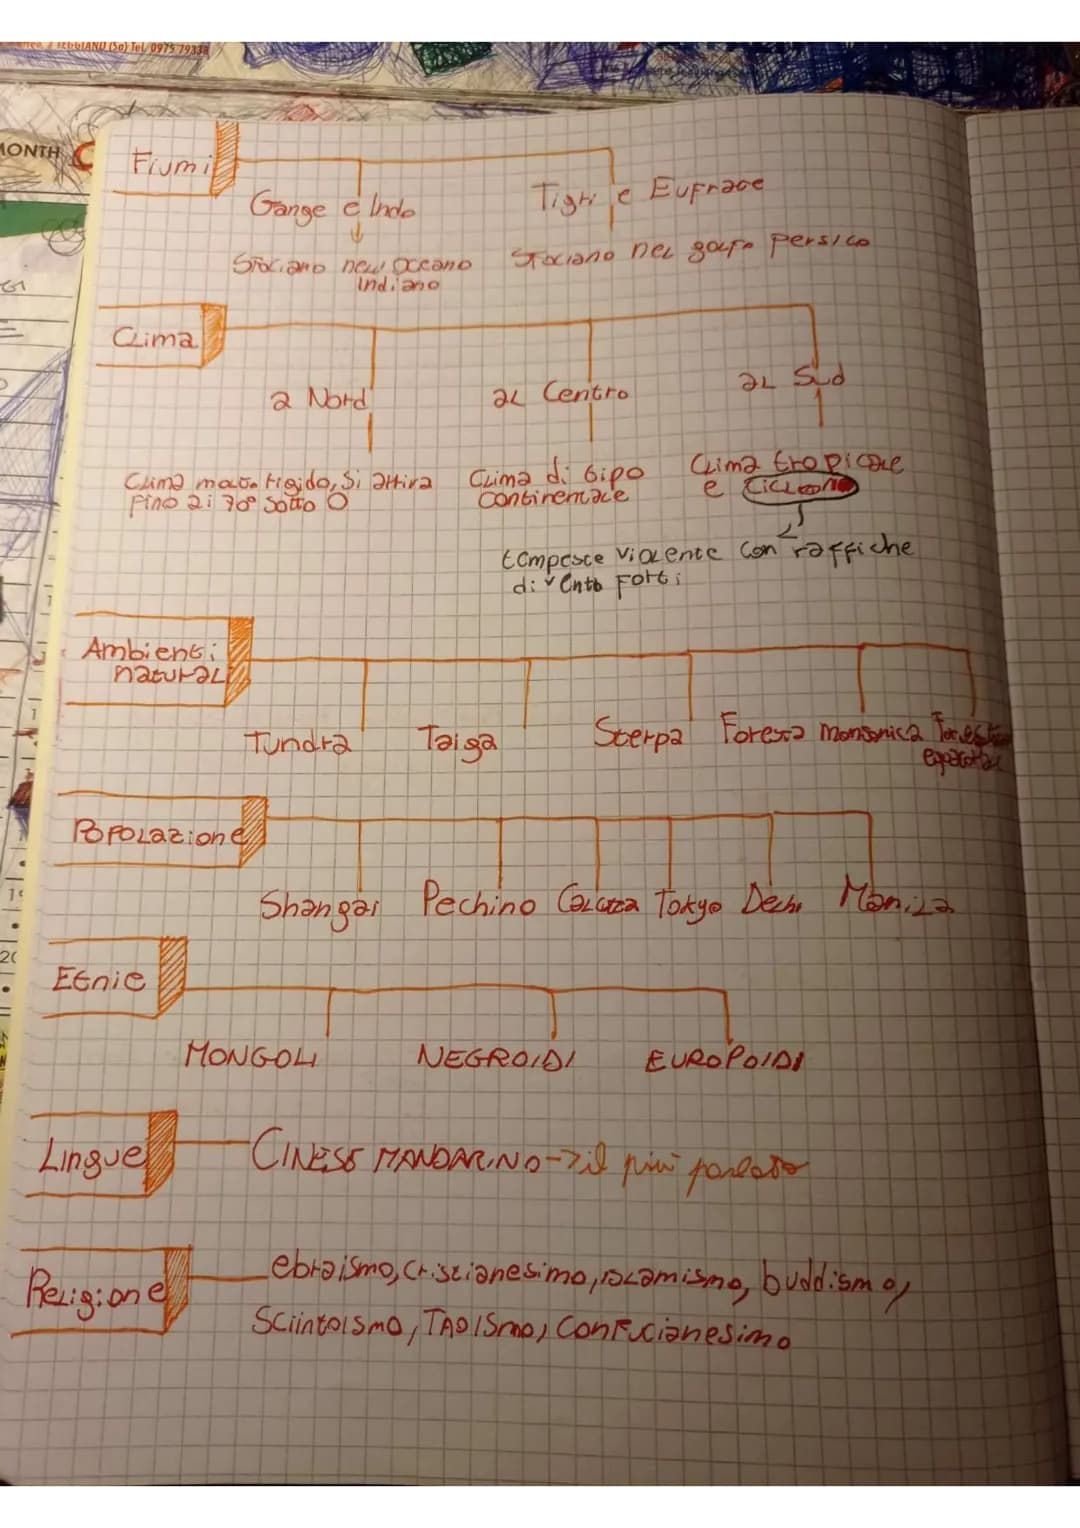 TEGGIANO (Sa) Tel. 0975 79338
MONTH
Fiumi
Gange e Indo
Tigri e Eufrate
Sfociano nell'oceano
Indiano
Sfociano nel golfo persico
Clima
a Nord
al Centro
al Sud
Clima molto rigido, Si arriva
Fino ai 70° Sotto 0
Clima di tipo
continentale
Clima tropicale
e Cicloni
tempeste violente con raffiche
di vento Forti
Ambienti
naturali
Tundra
Taiga
Sterpa
Foresta monsonica
Foresta
equatoriale
Popolazione
Shangai
Pechino
Calcutta
Tokyo
Delhi
Manila
Etnie
MONGOLI
NEGROIDI
EUROPOIDI
Lingue
CINESE MANDARINO->il più parlato
Religione
ebraismo, cristianesimo, islamismo, buddismo,
Sciintoismo, TAOISmo, Confucianesimo